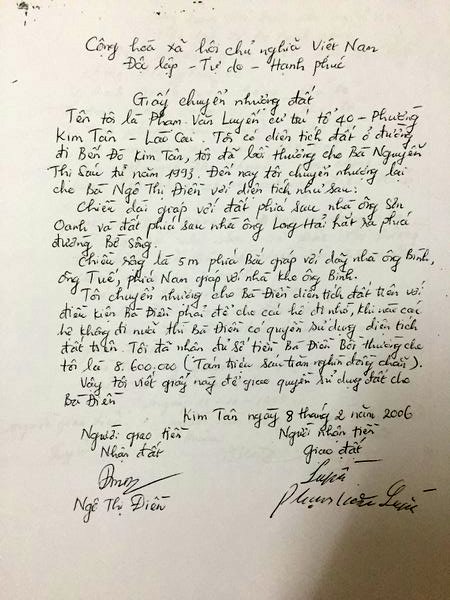 Công hoà xã hội chủ nghĩa Việt Nam
Độc lập - Tự do - Hạnh phúc
Giấy chuyển nhượng đất
Tên tôi là Phạm Văn Luyến cư tại tổ 40 - Phường
Kim Tân - Lào Cai. Tôi có diện tích đất ở đường
đi Bến Đò Kim Tân, tôi đã bồi thường cho Bà Nguyễn
Thị Sáu từ năm 1993. Đến nay tôi chuyển nhượng lại
cho Bà Ngô Thị Điền với diện tích như sau:
Chiều dài giáp với đất phía sau nhà ông Sơn
Oanh và đất phía sau nhà ông Long Hải hắt ra phía
đường Bờ Sông.
Chiều rộng là 5m phía Bắc giáp với dãy nhà ông Bình,
ông Tuế, phía Nam giáp với nhà kho ông Bình.
Tôi chuyển nhượng cho Bà Điền diện tích đất trên với
điều kiện Bà Điền phải để cho các hộ đi nhờ, khi nào các
hộ không đi nữa thì Bà Điền có quyền sử dụng diện tích
đất trên. Tôi đã nhận đủ số tiền Bà Điền Bồi thường cho
tôi là 8.600.000 (Tám triệu sáu trăm nghìn đồng chẵn).
Vậy tôi viết giấy này để giao quyền sử dụng đất cho
Bà Điền
Kim Tân ngày 8 tháng 2 năm 2006
Người giao tiền
Nhận đất
Ngô Thị Điền
Người nhận tiền
giao đất
Luyến
Phạm Văn Luyến